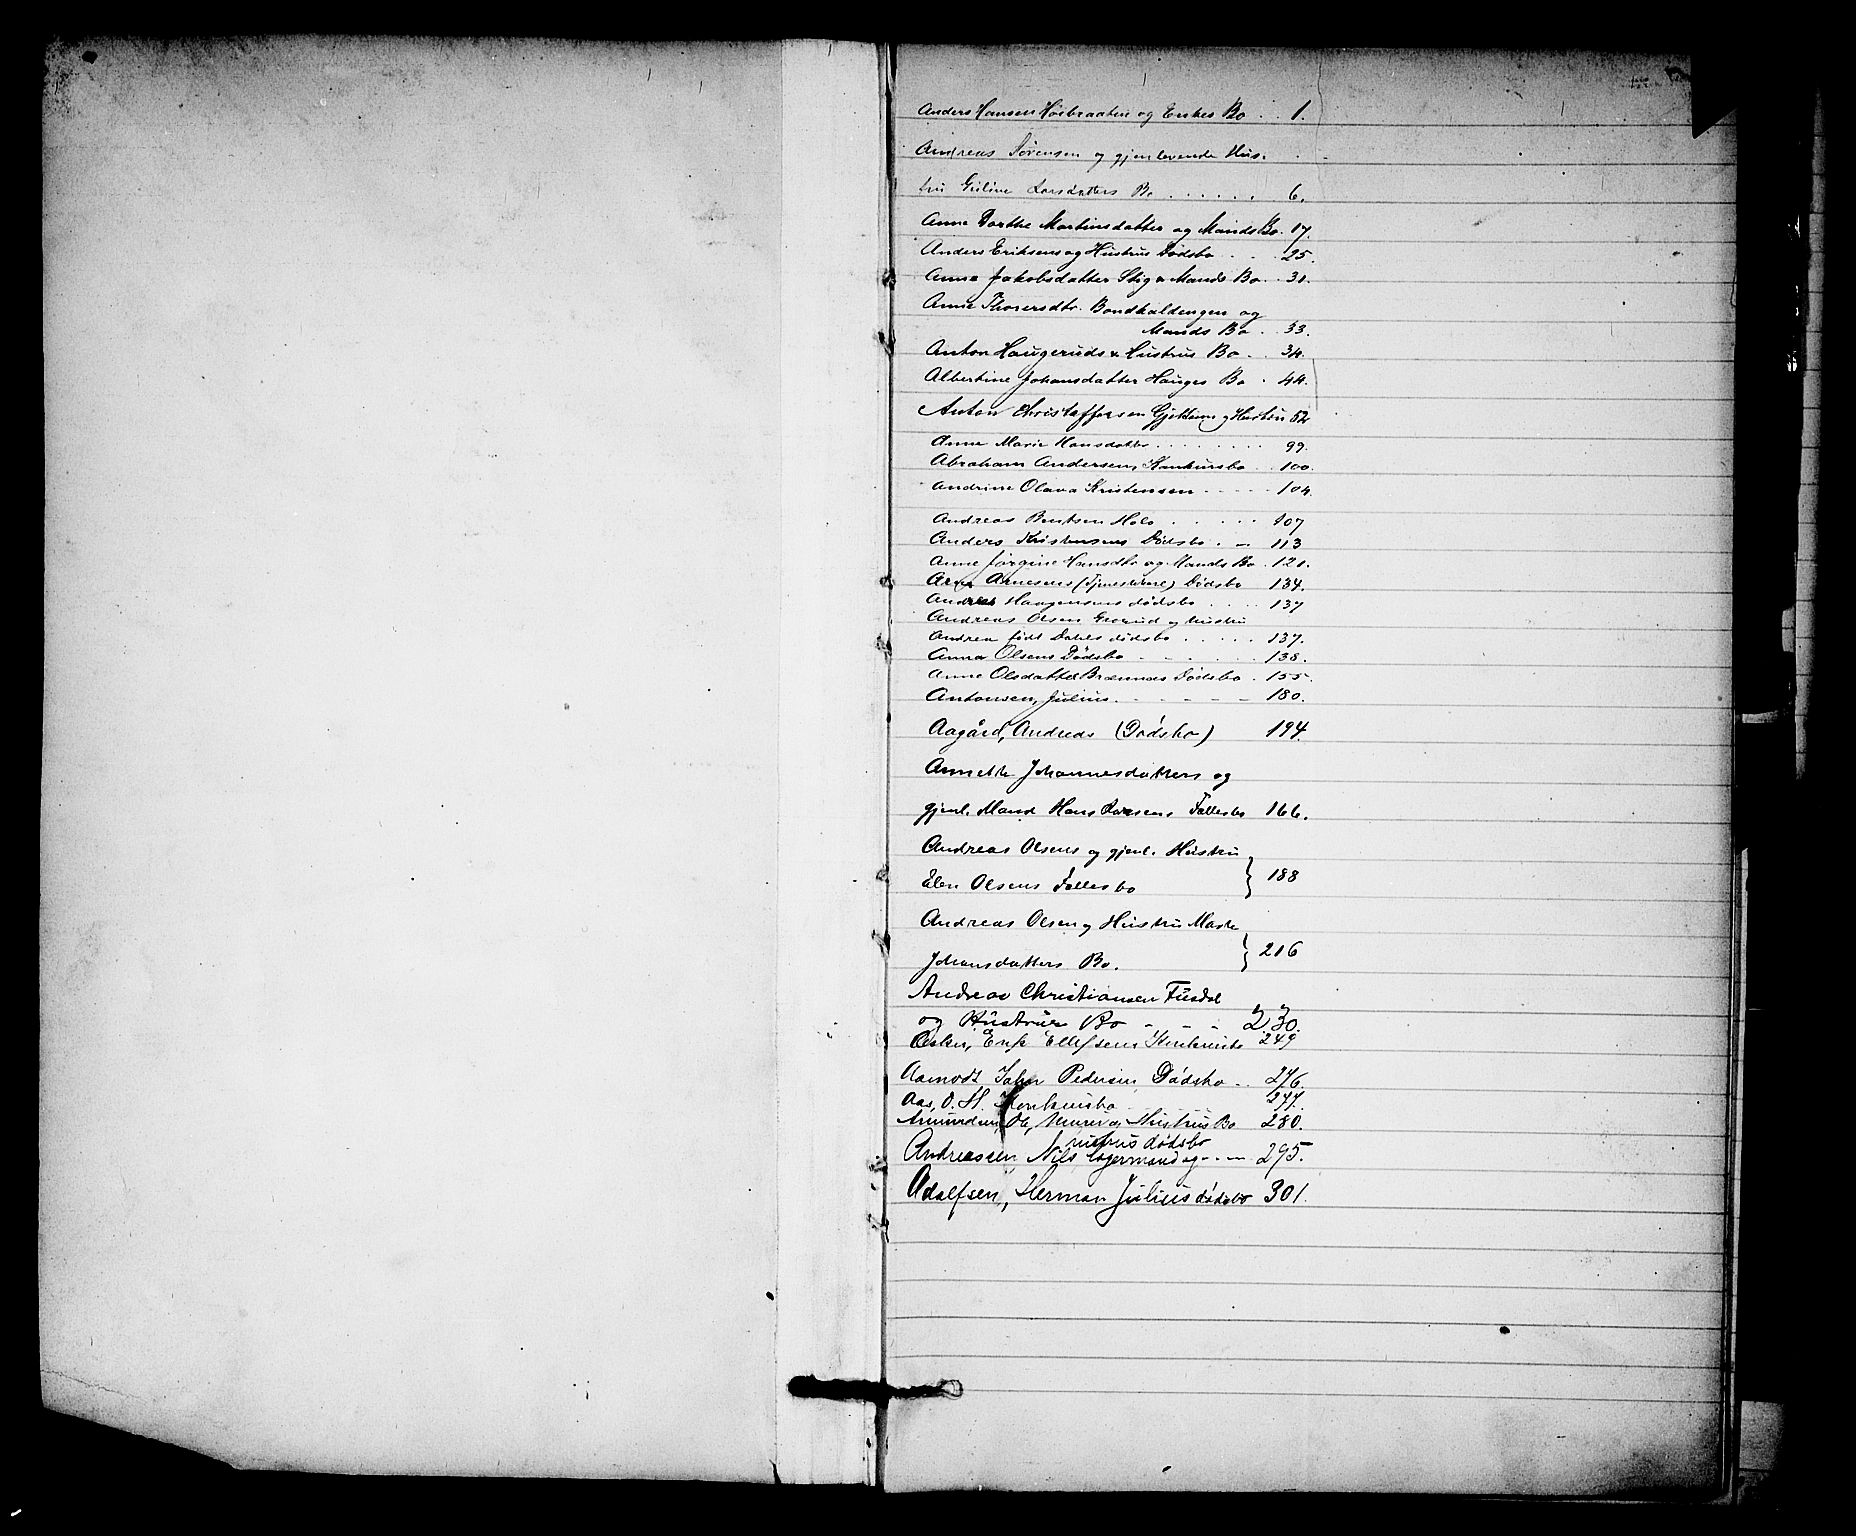 Anders Hansen Høibraaten og Enkes Bo . . 1.
Andreas Sørensen og gjenlevende Hus-
tru Guline Larsdatters Bo . . . . . . 6.
Anne Dorthe Martinsdatter og Mands Bo. 17.
Anders Eriksens og Hustrus Dødsbo . . . 25.
Anna Jakobsdatter Stig & Mands Bo . . 30.
Anne Thorersdtr. Bondkaldengen og
Mands Bo . . 33.
Anton Haugeruds & Hustrus Bo . . 34.
Albertine Johansdatter Hauges Bo . 44.
Anton Christoffersen og Hustru 52
Anne Marie Hansdatter . . . . . . . 99.
Abraham Andersen, Konkursbo . . 100.
Andrine Olava Kristensen . . . . . 104.
Andreas Berntsen Holo . . . . . 107
Anders Kristensens Dødsbo . - 113
Anne Jørgine Hansdtr og Mands Bo . 121.
Arne Arnesens (Tjenestekarl) Dødsbo 134.
Andreas Haagensens dødsbo . . . . 137
Andreas Olsen og Hustru
Andrea født Dahls dødsbo . . . . . 137.
Anna Olsens Dødsbo . . . . . . 138.
Anne Olsdatter Brænnas Dødsbo . 155.
Antonsen, Julius . . - - - - 180.
Aagård, Andreas (Dødsbo) 194.
Annette Johannesdatters og
gjenl. Mand Hans Larsens Fællesbo 166.
Andreas Olsens og gjenl. Hustru
Elen Olsens Fællesbo } 188
Andreas Olsen og Hustru Marte
Johansdatters Bo. } 216
Andreas Christiansen Fusdal
og Hustrus Bo - - - 230.
Asker, Enke Ellefsens Konkursbo 249
Aamodt, John Pedersen, Dødsbo . . 276.
Aas, O. H. Konkursbo 277.
Amundsen, Ole, Murer og Hustrus Bo 280.
hustrus dødsbo
Andreassen, Nils Lagermand og - . - 295.
Adolfsen, Herman Julius dødsbo 301.